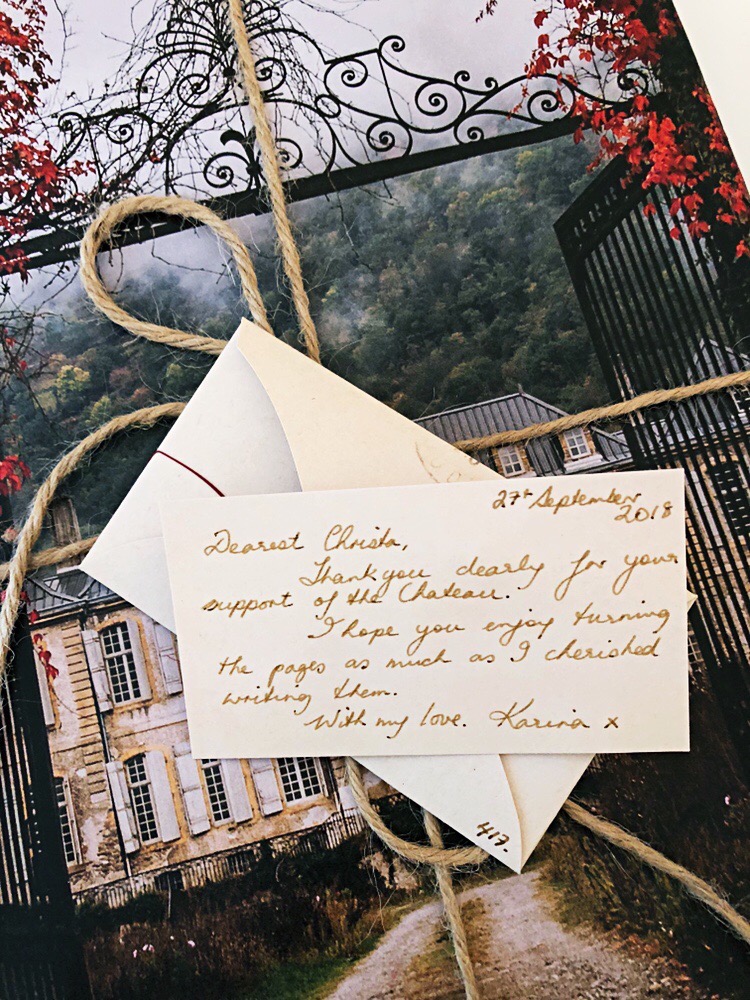 27th September
2018
Dearest Christa,
Thank you dearly for your
support of the Chateau.
I hope you enjoy turning
the pages as much as I cherished
writing them.
With my love. Karina x
417.